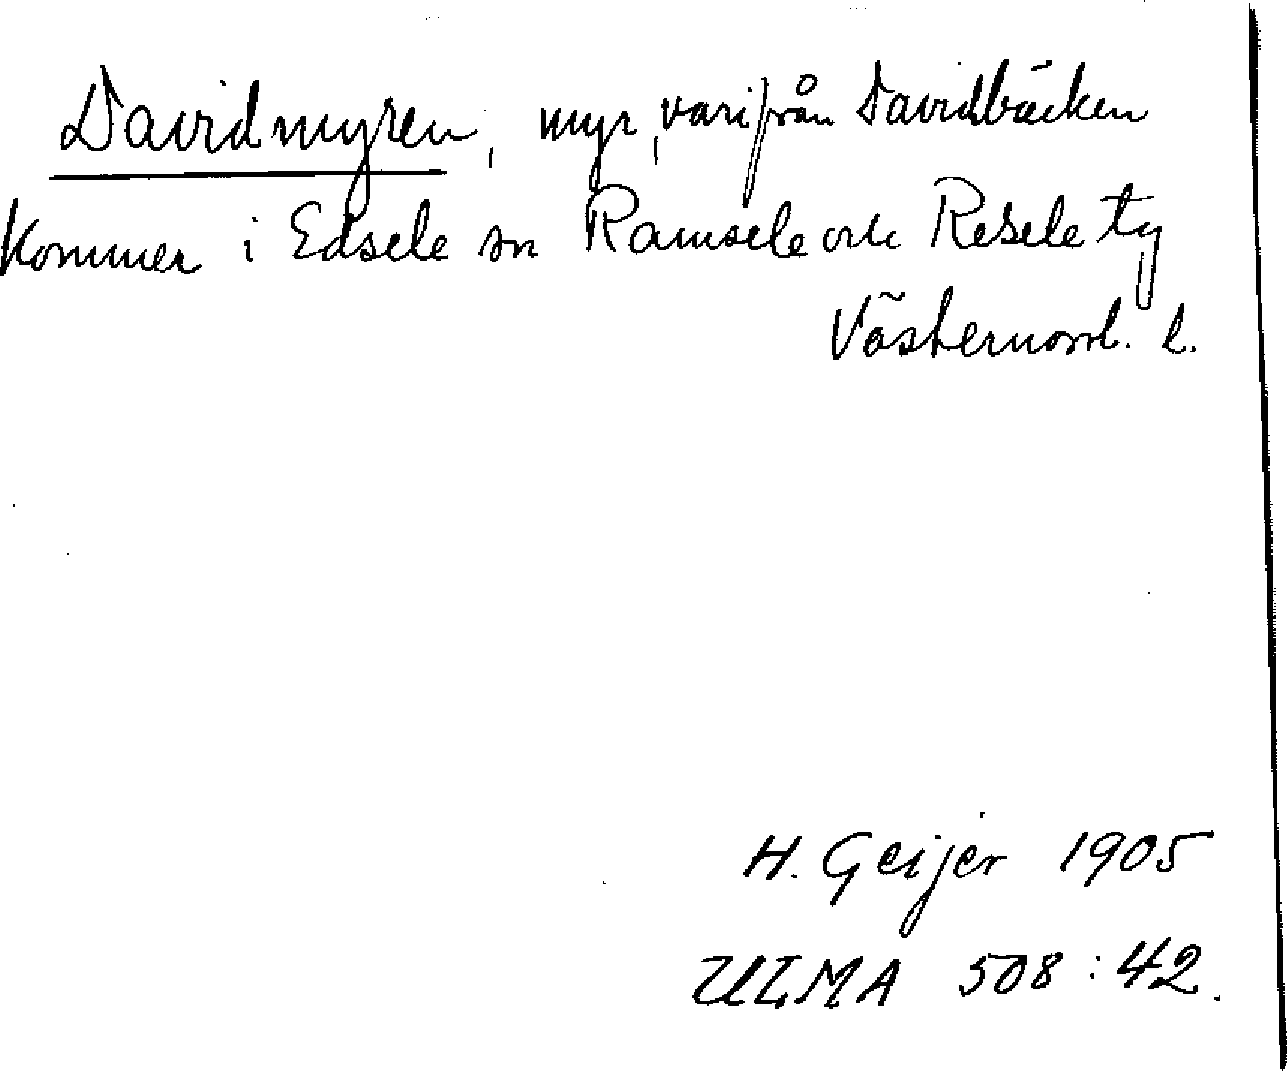 Davidmyren, myr, varifrån Davidbäcken
kommer i Edsele sn Ramsele och Resele tg
Västernorrl. l.
H. Geijer 1905
ULMA 508:42.